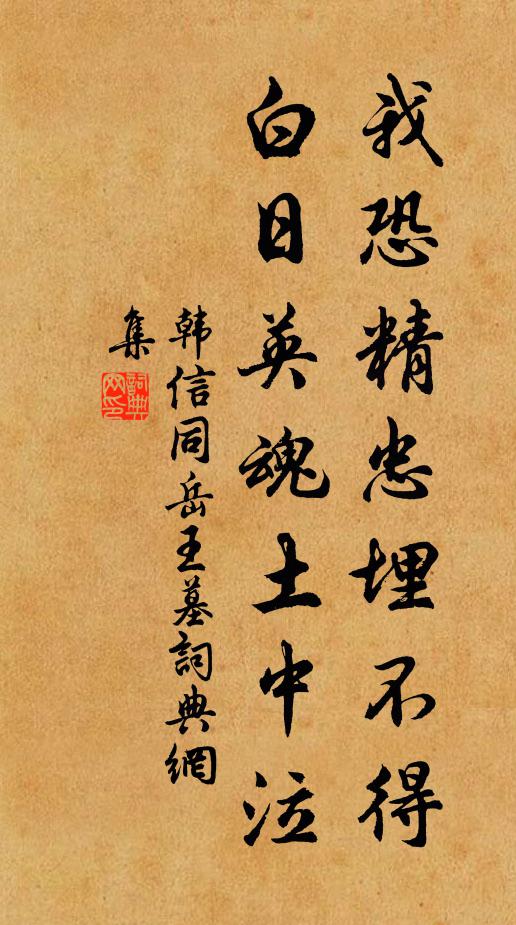 我恐精忠埋不得
白日英魂土中泣
韩信同岳王墓詞典網
集
詞典
网印